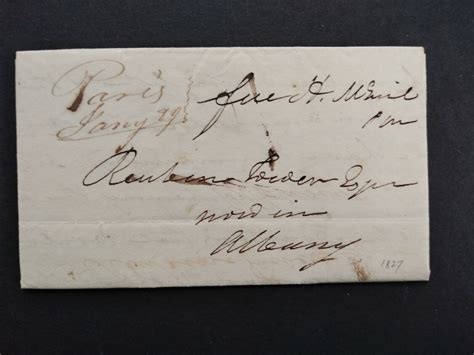 Paris
Jany 29
free H. Mail
Reuben Tower Esqr
now in
Albany
1827